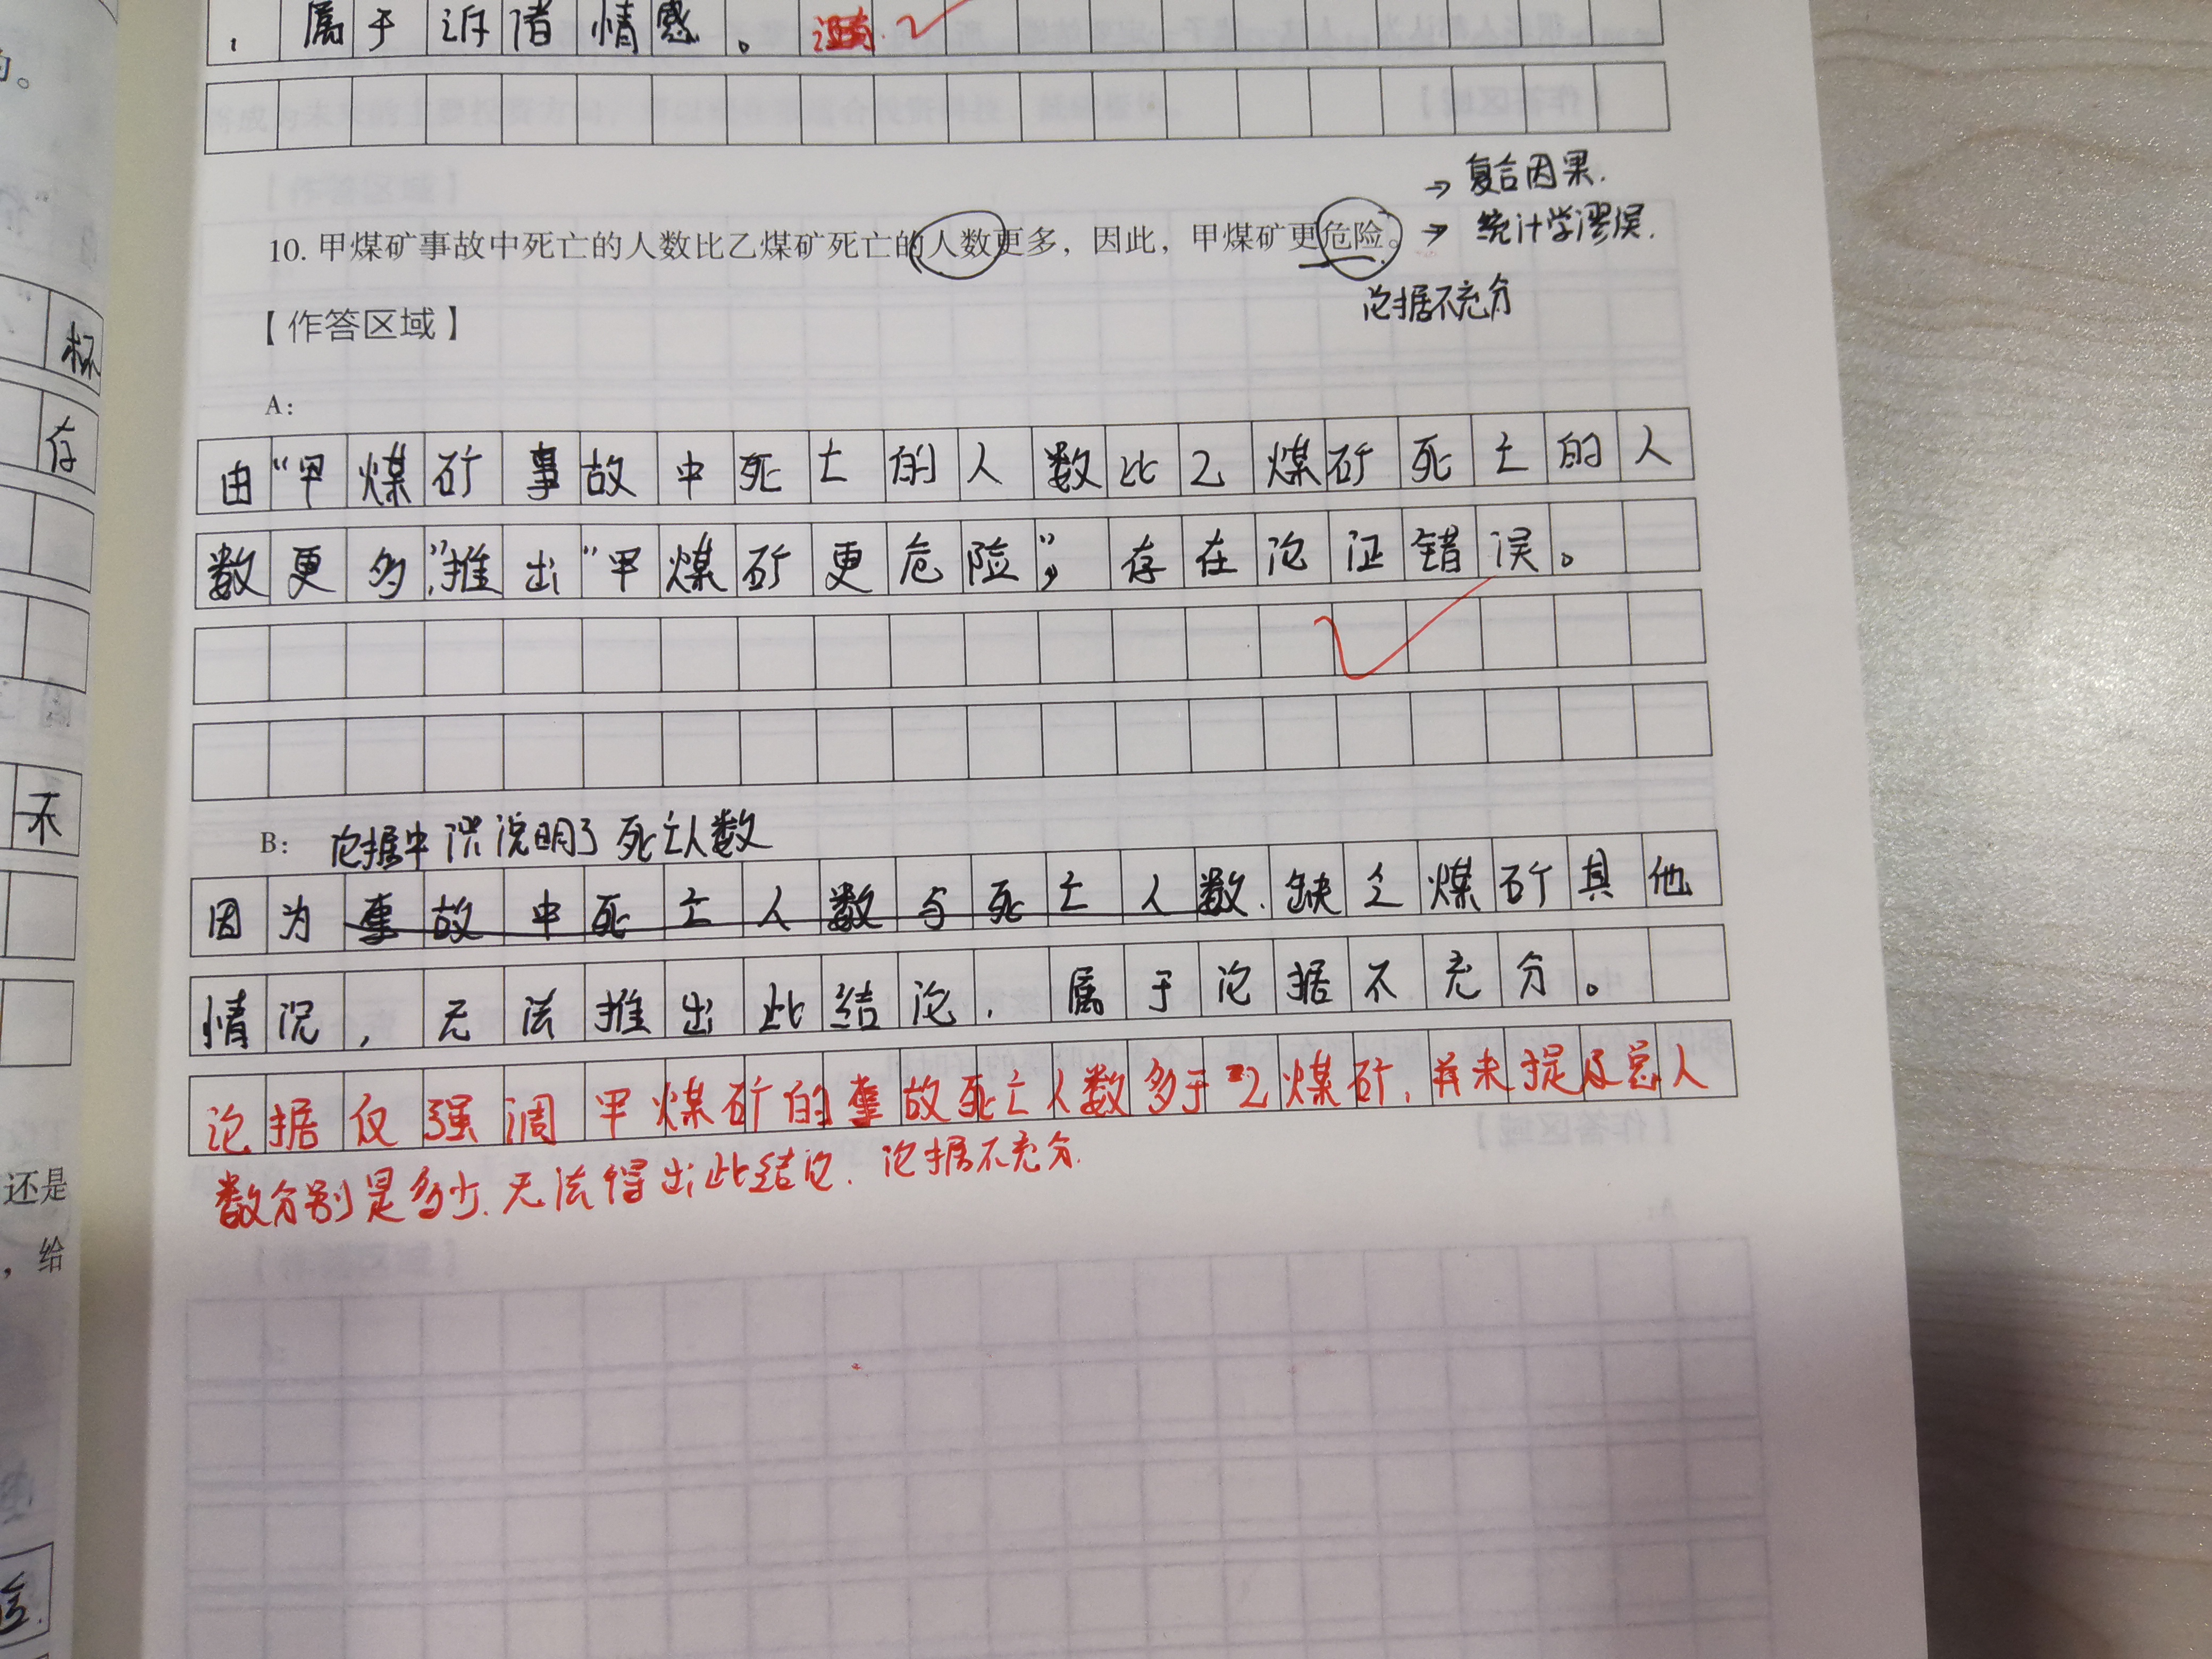 ，属于诉诸情感。
的。
→复合因果.
10. 甲煤矿事故中死亡的人数比乙煤矿死亡的人数更多，因此，甲煤矿更危险。→统计学谬误.
论据不充分
【作答区域】
A：
由“甲煤矿事故中死亡的人数比乙煤矿死亡的人
数更多”，推出“甲煤矿更危险”，存在论证错误。
B：论据中只说明了死亡人数
因为事故中死亡人数与死亡人数.缺乏煤矿其他
情况，无法推出此结论，属于论据不充分。
论据仅强调甲煤矿的事故死亡人数多于乙煤矿，并未提及总人
数分别是多少.无法得出此结论.论据不充分.
存
不
还是
，给